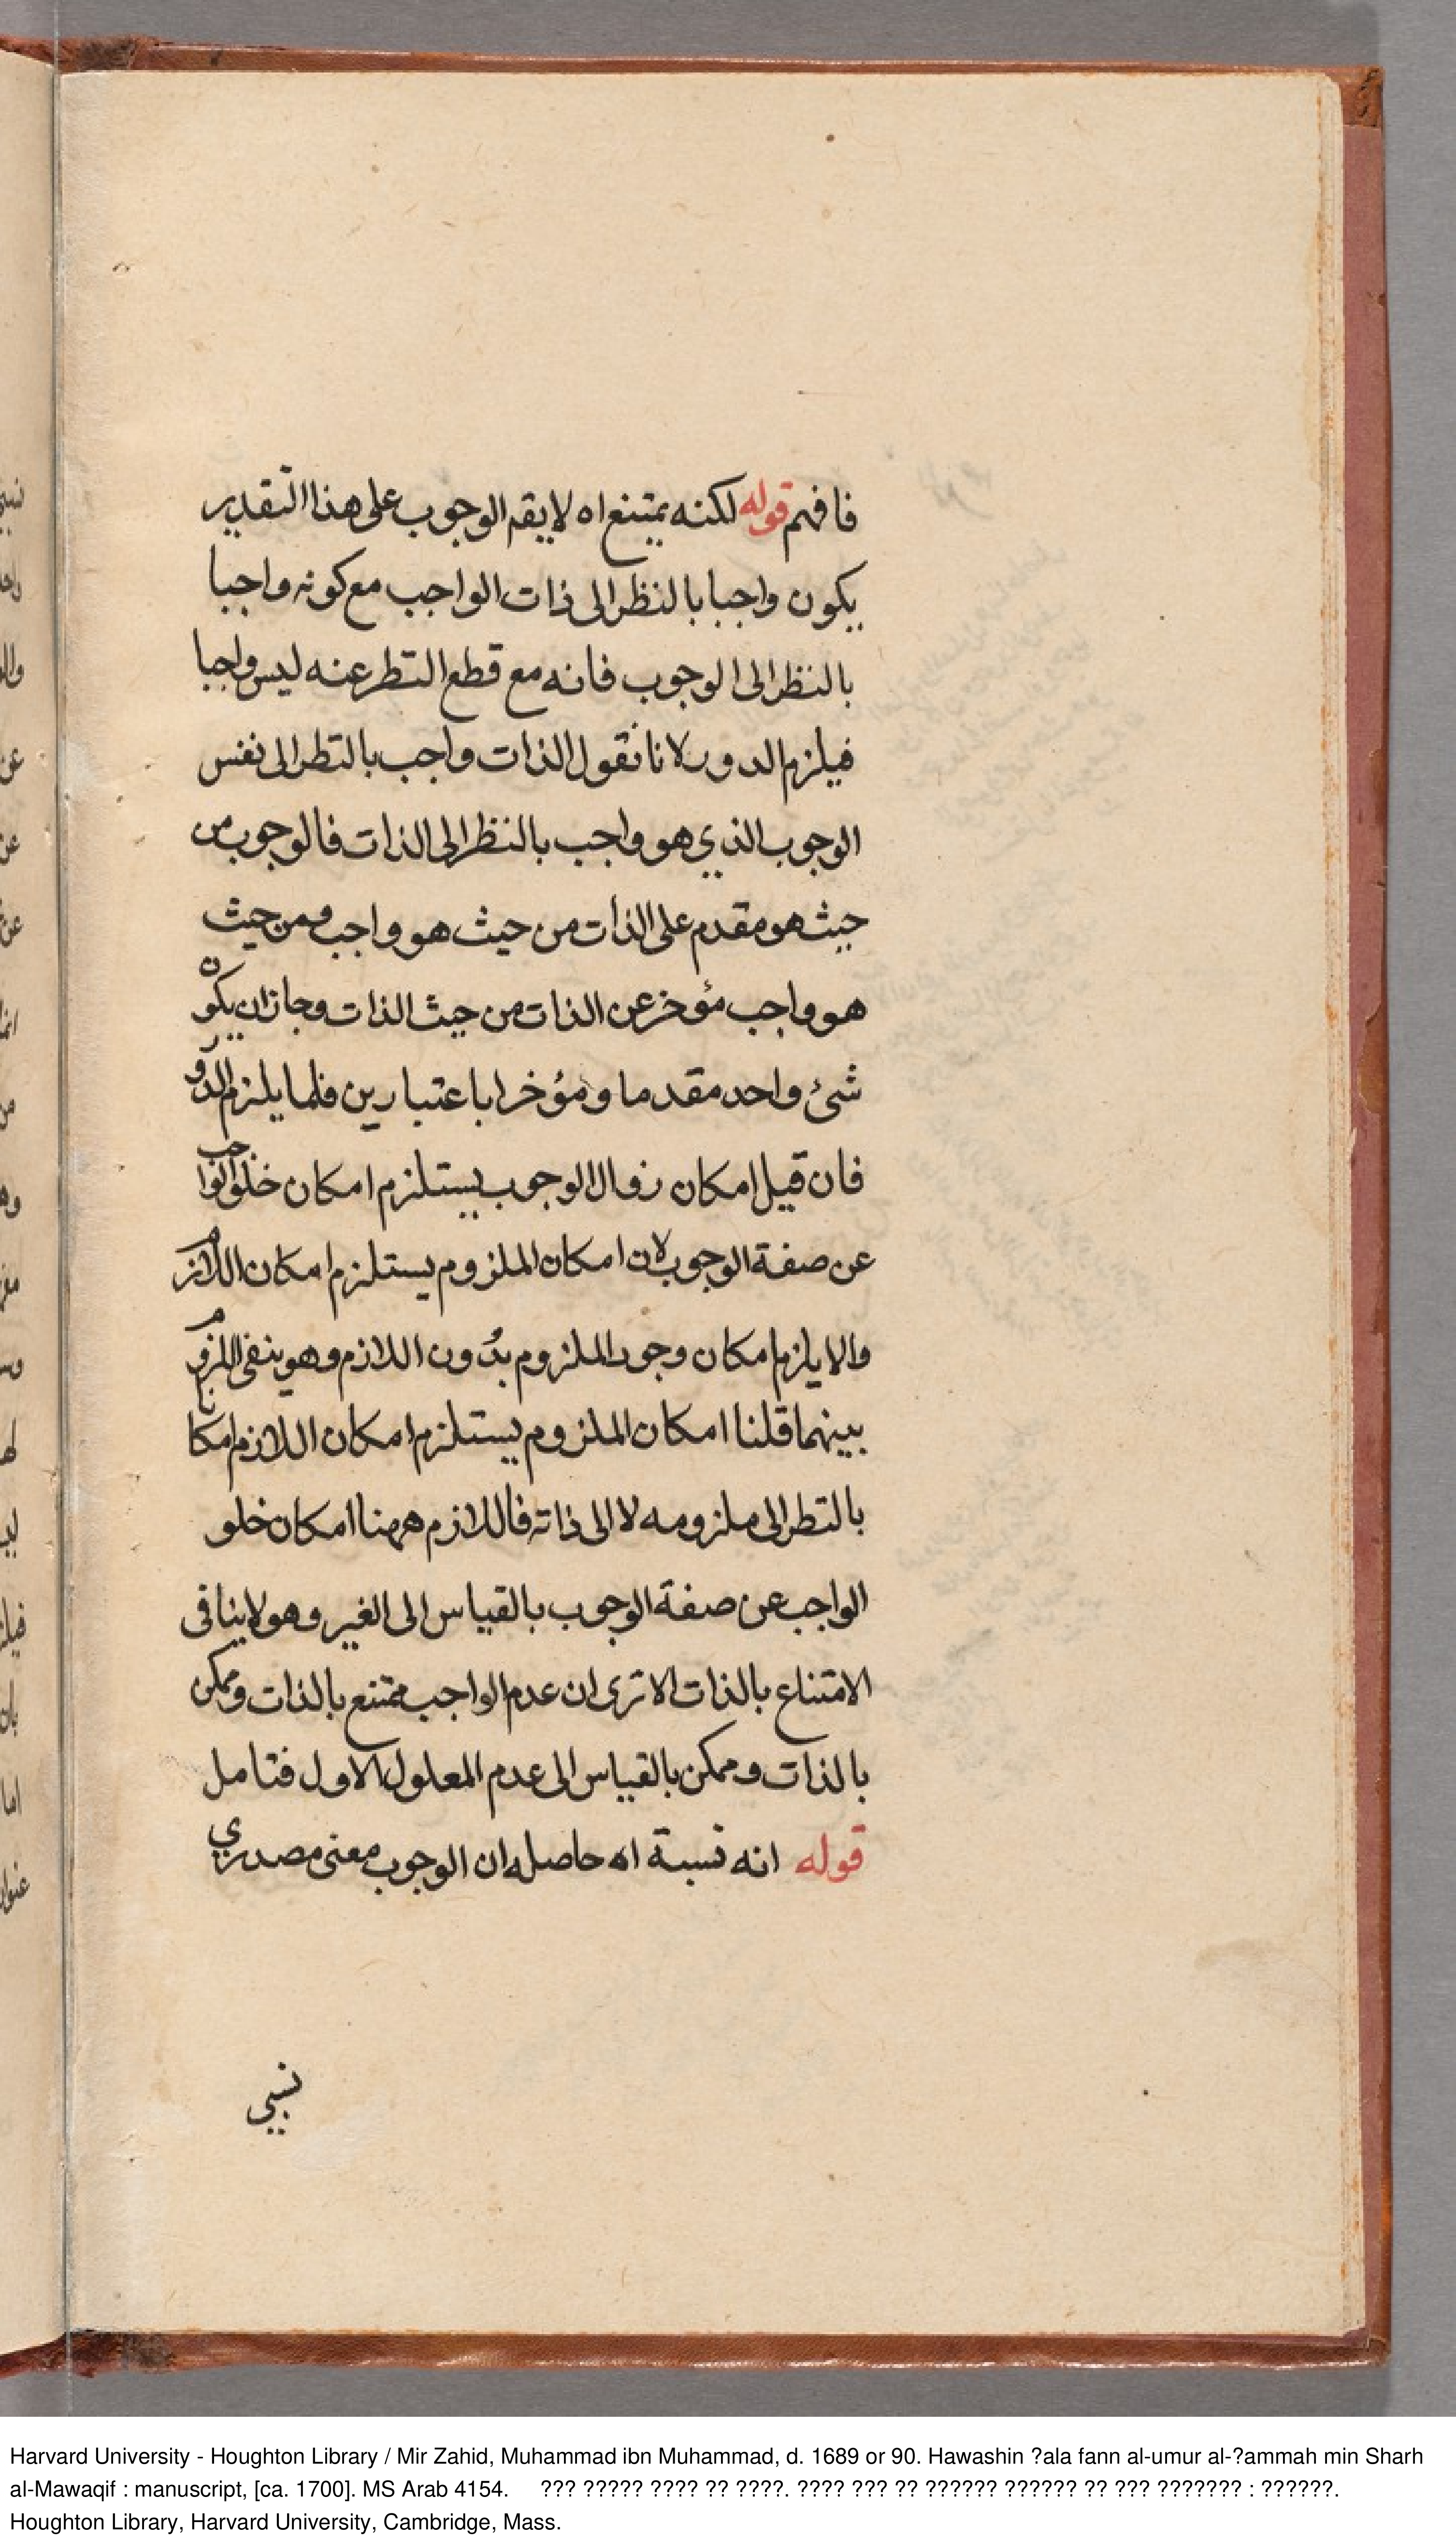 فافهم قوله لكنه يمتنع اه لا يقم الوجوب على هذا التقدير
يكون واجبا بالنظر الى ذات الواجب مع كونه واجبا
بالنظر الى الوجوب فانه مع قطع النظر عنه ليس واجبا
فيلزم الدور لانا نقول الذات واجب بالنظر الى نفس
الوجوب الذي هو واجب بالنظر الى الذات فالوجوب من
حيث هو مقدم على الذات من حيث هو واجب ومن حيث
هو واجب مؤخر عن الذات من حيث الذات وجاز ان يكون
شئ واحد مقدما ومؤخرا باعتبارين فلما يلزم الدور
فان قيل امكان زوال الوجوب يستلزم امكان خلو الواجب
عن صفة الوجوب لان امكان الملزوم يستلزم امكان اللازم
والا يلزم امكان وجود الملزوم بدون اللازم وهو ينفى اللزوم
بينهما قلنا امكان الملزوم يستلزم امكان اللازم امكانا
بالنظر الى ملزومه لا الى ذاته فاللازم ههنا امكان خلو
الواجب عن صفة الوجوب بالقياس الى الغير وهو لا ينافى
الامتناع بالذات الا ترى ان عدم الواجب ممتنع بالذات وممكن
بالذات وممكن بالقياس الى عدم المعلول الاول فتامل
قوله انه نسبة اه حاصله ان الوجوب معنى مصدري
نسبي
Harvard University - Houghton Library / Mir Zahid, Muhammad ibn Muhammad, d. 1689 or 90. Hawashin ?ala fann al-umur al-?ammah min Sharh
al-Mawaqif : manuscript, [ca. 1700]. MS Arab 4154. ??? ????? ???? ?? ????. ???? ??? ?? ?????? ?????? ?? ??? ??????? : ??????.
Houghton Library, Harvard University, Cambridge, Mass.